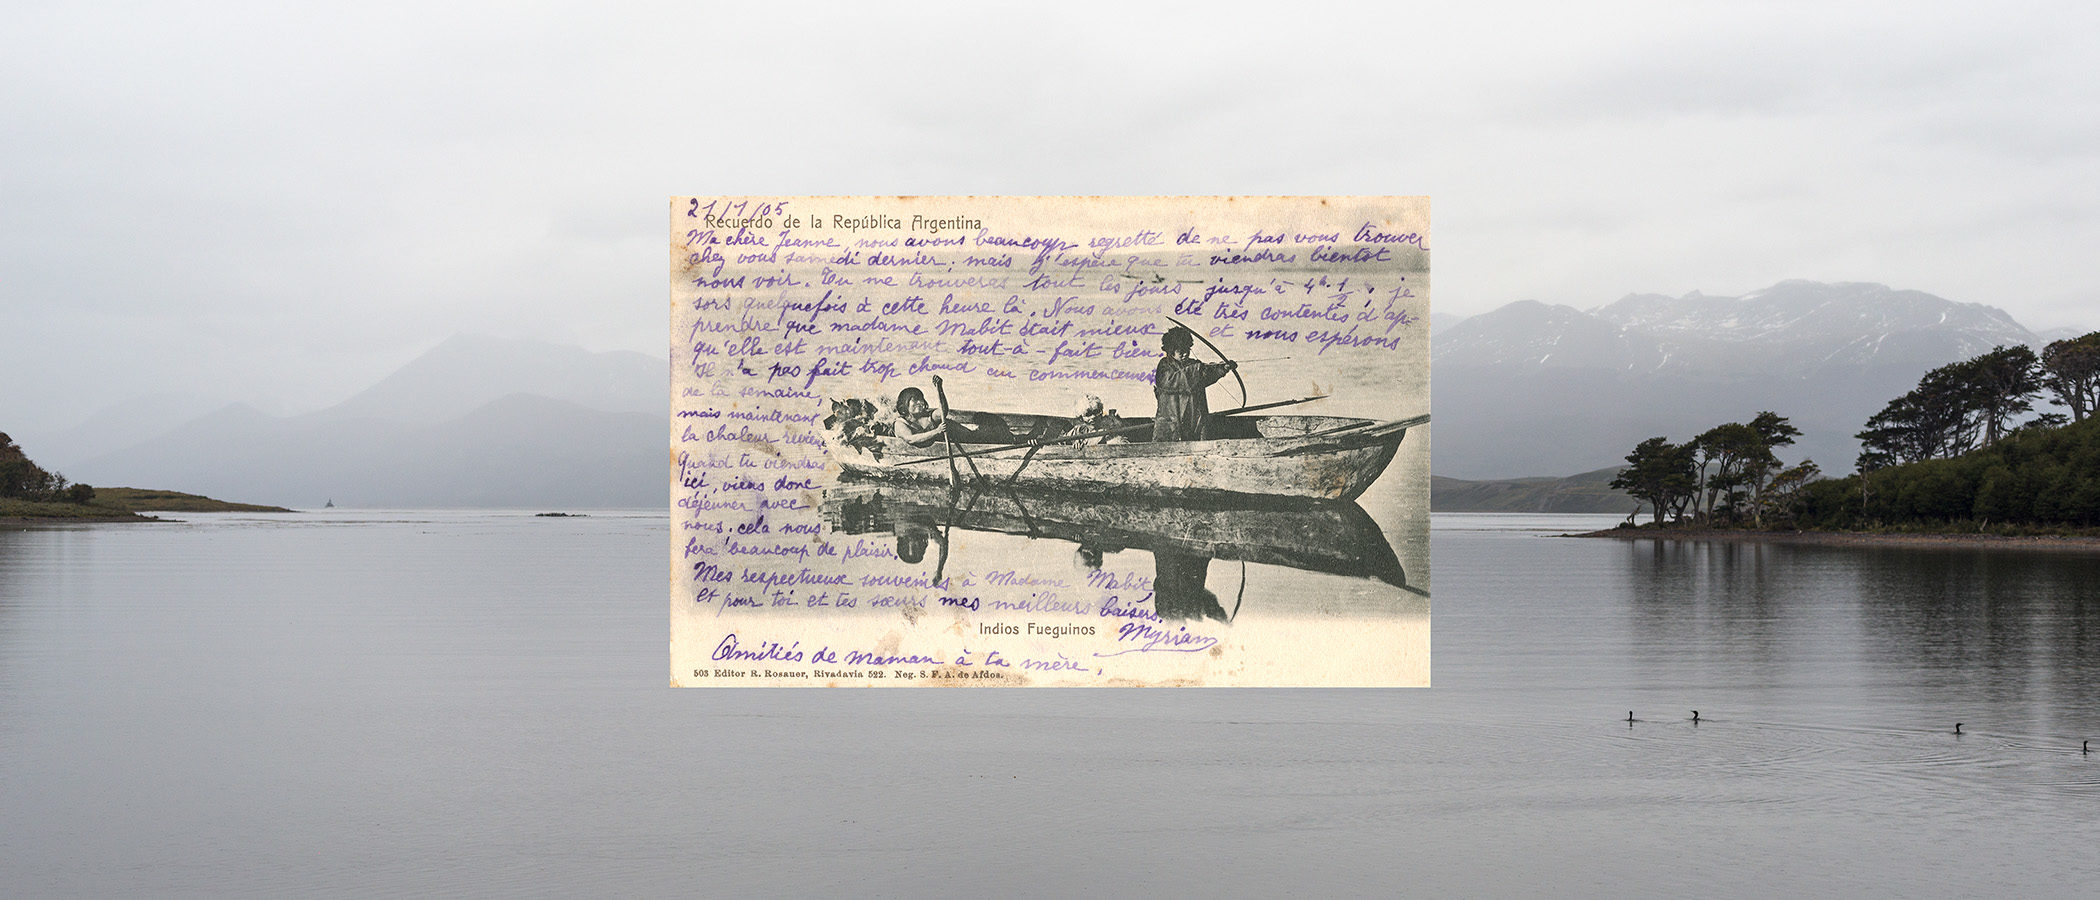 21/1/05
Recuerdo de la República Argentina
Ma chère Jeanne, nous avons beaucoup regretté de ne pas vous trouver
chez vous samedi dernier. mais j'espère que tu viendras bientôt
nous voir. Tu me trouveras tout les jours jusqu'à 4h. 1/2, je
sors quelquefois à cette heure là. Nous avons été très contentes d'ap-
prendre que madame Mabit était mieux et nous espérons
qu'elle est maintenant tout-à-fait bien.
Il n'a pas fait trop chaud au commencement
de la semaine,
mais maintenant
la chaleur revient,
Quand tu viendras
ici, viens donc
déjeuner avec
nous. cela nous
fera beaucoup de plaisir.
Mes respectueux souvenirs à Madame Mabit,
et pour toi et tes sœurs mes meilleurs baisers.
Indios Fueguinos
Myriam
Amitiés de maman à ta mère.
503 Editor R. Rosauer, Rivadavia 522. Neg. S. F. A. de Afdos.